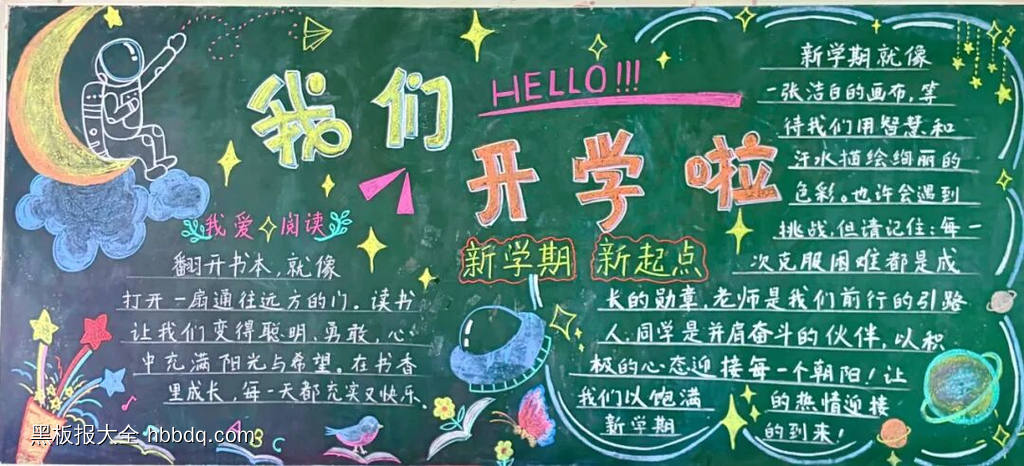 我们
HELLO!!!
开学啦
新学期 新起点
我爱阅读
翻开书本,就像
打开一扇通往远方的门。读书
让我们变得聪明、勇敢,心
中充满阳光与希望。在书香
里成长,每一天都充实又快乐、
新学期就像
一张洁白的画布,等
待我们用智慧和
汗水描绘绚丽的
色彩。也许会遇到
挑战,但请记住:每一
次克服困难都是成
长的勋章,老师是我们前行的引路
人,同学是并肩奋斗的伙伴,以积
极的心态迎接每一个朝阳!让
我们以饱满 的热情迎接
新学期 的到来!
黑板报大全 hbbdq.com